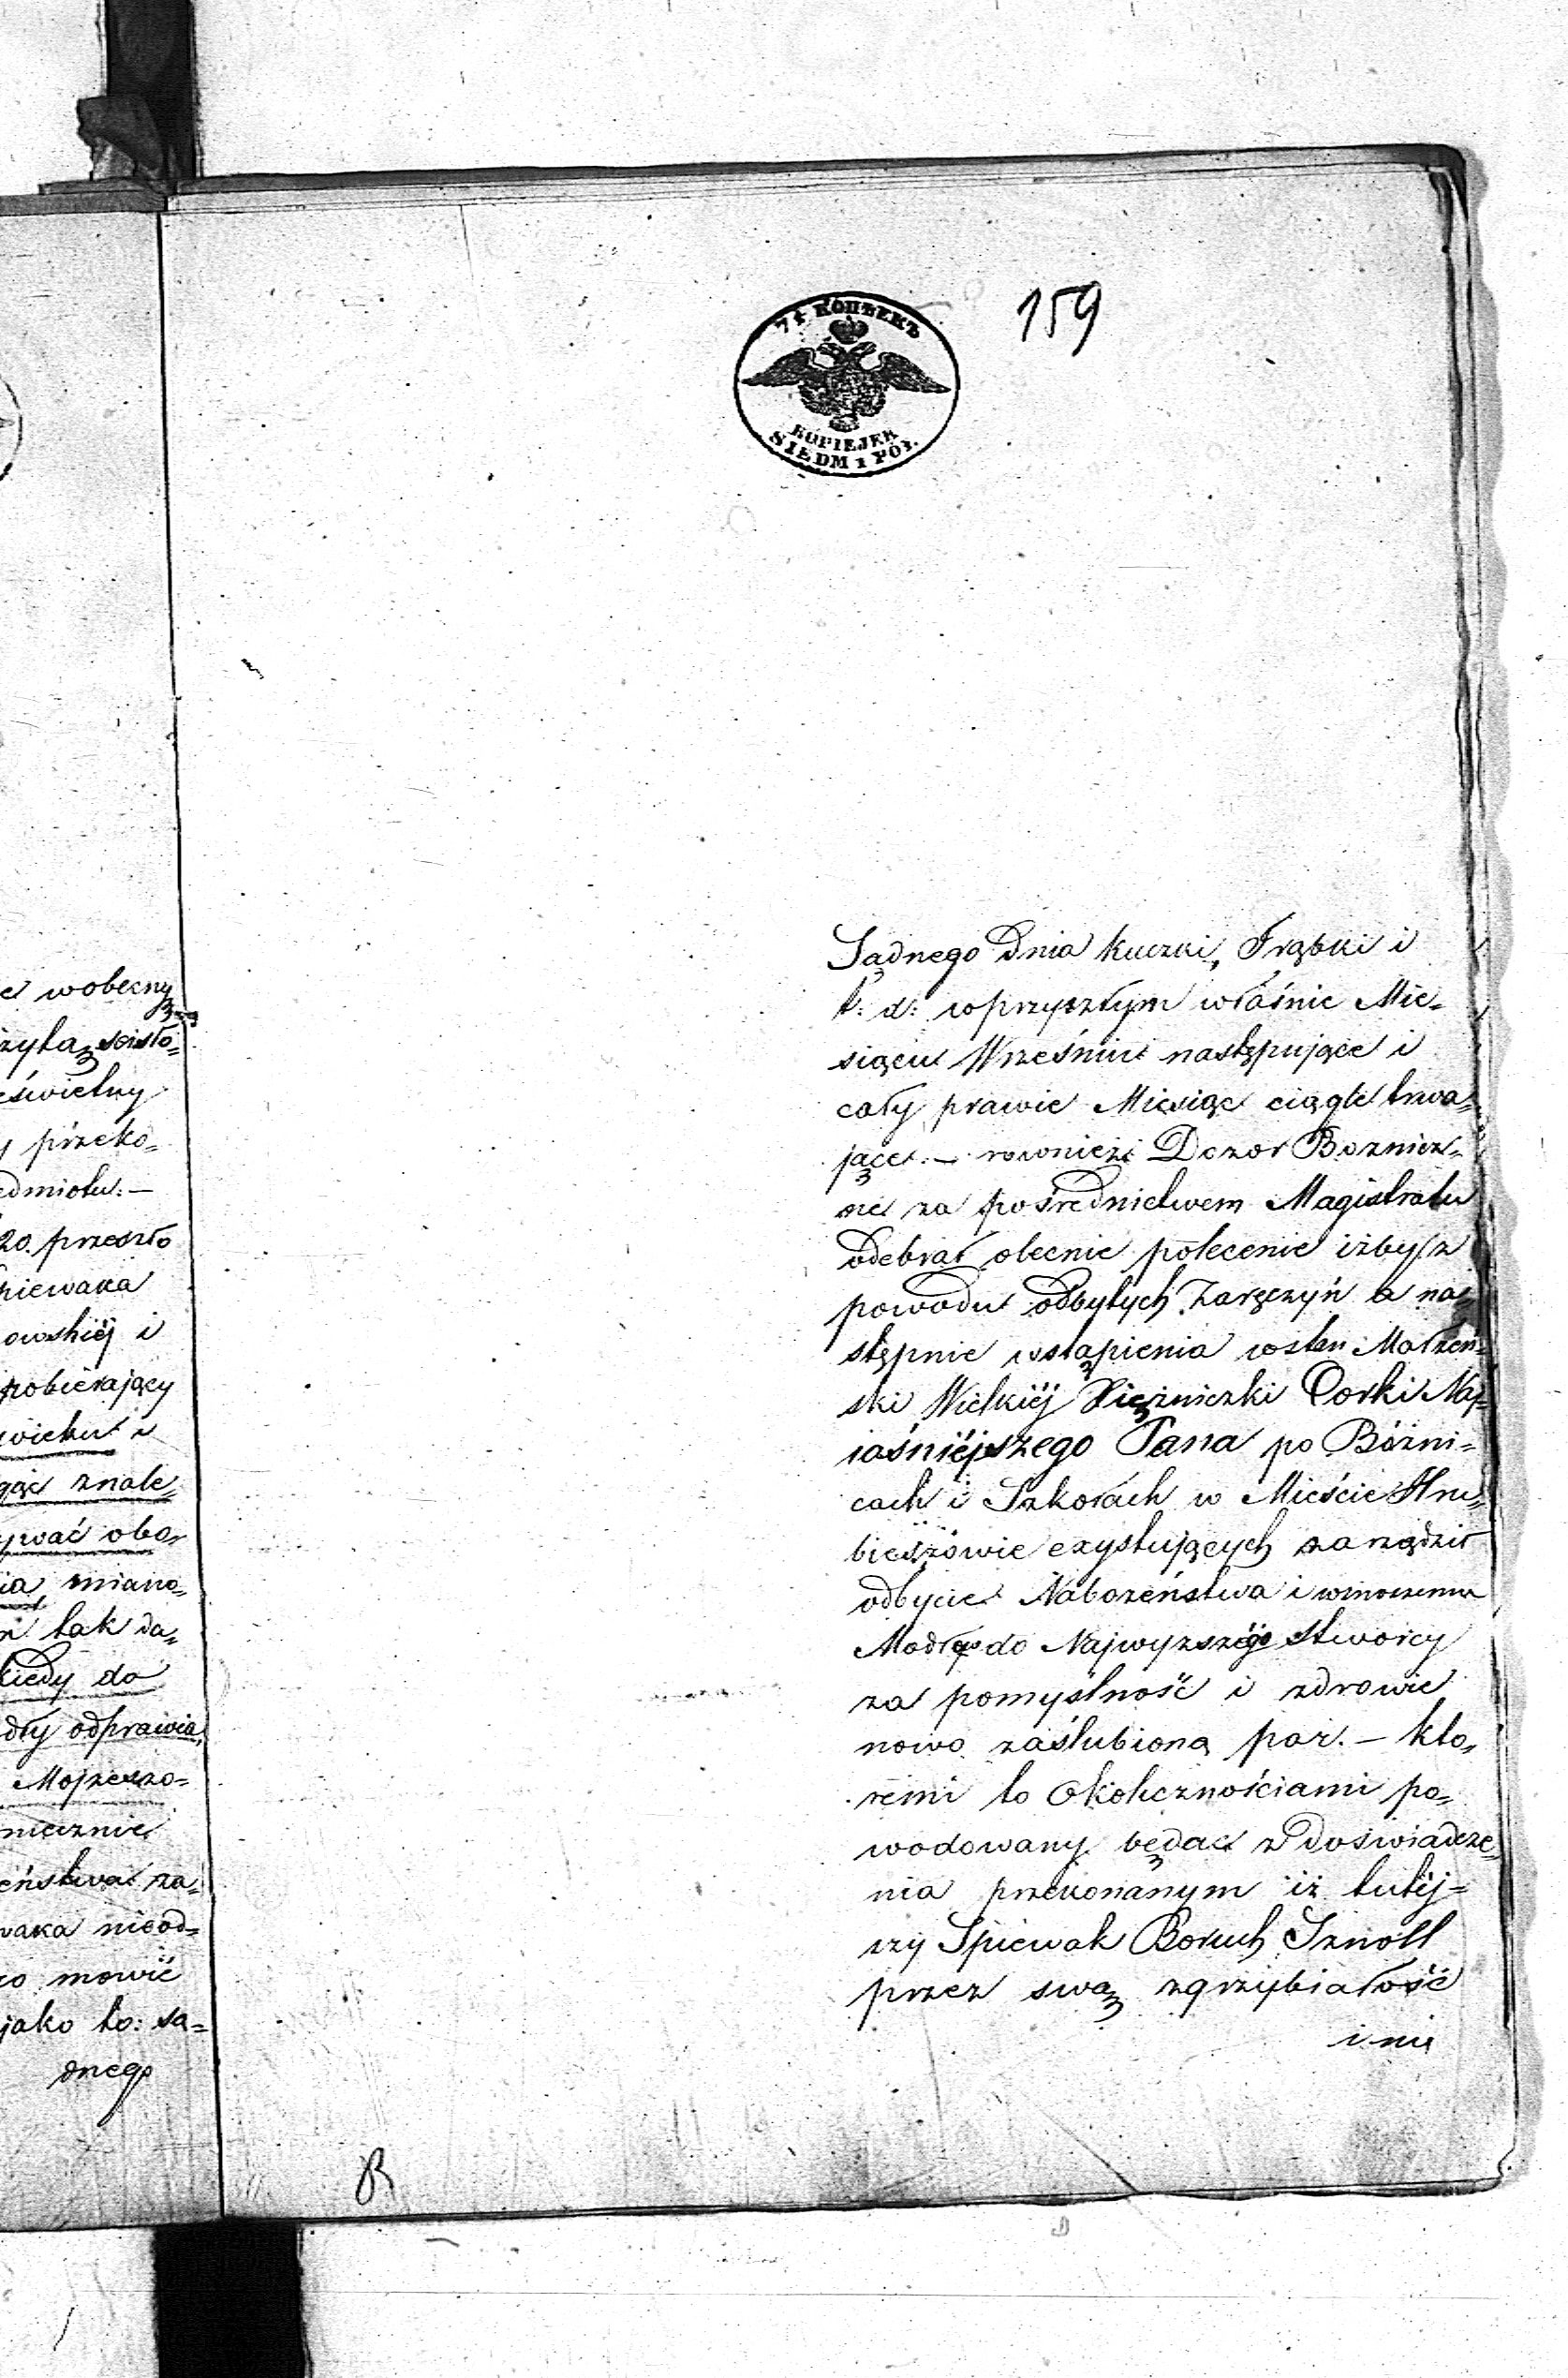 e wobecny
zytą scisło=
eświetny
y przeko=
edmiotu:—
20. przeszło
piewaka
owskiéj i
pobierający
wieku i
gąc znale=
ywać obo=
ia miano=
tak da=
kiedy do
dły odprawia
Mojzeszo=
niecznie
eństwa za=
waka nieod=
co mowić
jako to: sa=
dnego
159
7½ КОПѢЕКЪ
KOPIEJEK
SIEDM i PÓŁ.
Sądnego Dnia kuczki, Trąbki i
t: d: wprzyszłym właśnie Mie=
siącu Wrześniu następujące i
cały prawie Miesiąc ciągle trwa=
jące.— rownież Dozor Boznicz=
ne za pośrednictwem Magistratu
odebrał obecnie polecenie iżby z
powodu odbytych Zaręczyń a na=
stępnie wstąpienia wstan Małzeń=
ski Wielkiéj Xiężniczki Corki Naj=
iaśniéjszego Pana po Bóżni=
cach i Szkołach w Mieście Hru=
bieszowie exystujących zarządził
odbycie Nabożeństwa i wznoszenia
Modły do Najwyzszégo Stworcy
za pomyślność i zdrowie
nowo zaślubioną par.— kto=
remi to Okolicznościami po=
wodowany będąc z Doświadcze=
nia przekonanym iż tutéj=
szy Spiewak Boruch Sznoll
przez swą zgrzybiałość
i nie